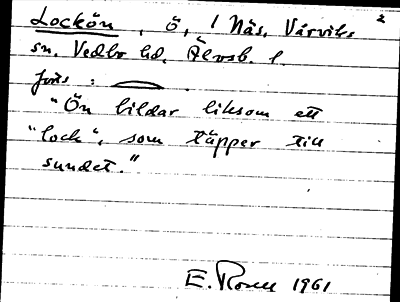 Lockön, ö, i Näs, Värviks
sn. Vedbo hd. Älvsb. l.
"Ön bildar liksom ett
"lock", som täpper till
sundet."
E. Rosell 1961